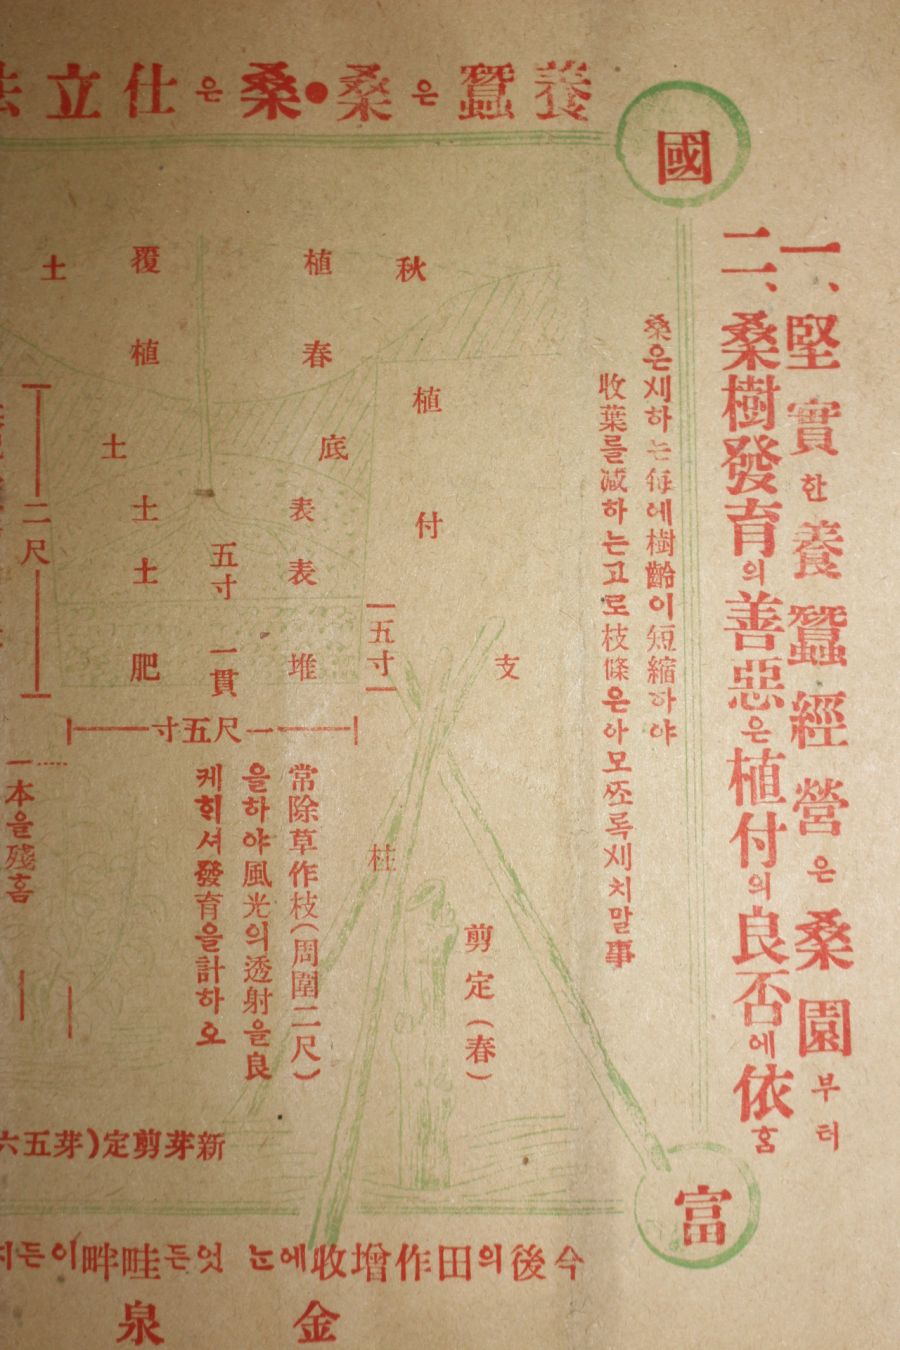 養蠶은 桑●桑은 仕立法
國
一、堅實한養蠶經營은桑園부터
二、桑樹發育의善惡은植付의良否에依홈
桑은刈하는每에樹齡이短縮하야
收葉를减하는고로枝條은아모쪼록刈치말事
秋植付
植春底
表表堆
覆植土土肥
土
土
五寸
一貫
五寸
二尺
一尺五寸
支柱
剪定(春)
常除草作枝(周圍二尺)
을하야風光의透射을良
케힉셔發育을計하오
一本을殘홈
新芽剪定(芽五六
富
今後의田作增收에는 엇든畦畔이든지
金泉